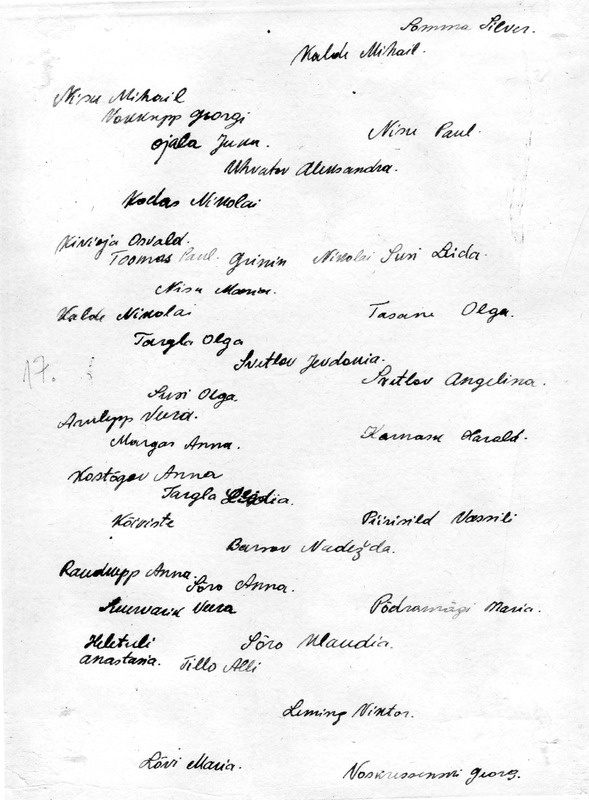 Somma Silver.
Kalde Mihail.
Nisu Mihail
Voskupp Georgi
Nisu Paul.
Ojala Juka.
Uhvatov Aleksandra.
Kodas Nikolai
Kivioja Osvald.
Toomas Paul. Grinin Nikolai Susi Leida.
Nisu Maria.
Kalde Nikolai
Tasane Olga.
Targla Olga
Svetlov Jevdokia.
17.
Svetlov Angelina.
Susi Olga
Arulepp Veera.
Margas Anna.
Karnasu Harald.
Kostõgov Anna
Targla
Kõiviste
Piirisild Vassili
Barsov Nadežda.
Raudsepp Anna.
Sõro Anna.
Veera
Põdramägi Maria.
Heletuli
Anastasia.
Sõro Klaudia.
Tillo Alli
Leming Viktor.
Lõvi Maria.
Voskressenski Georg.